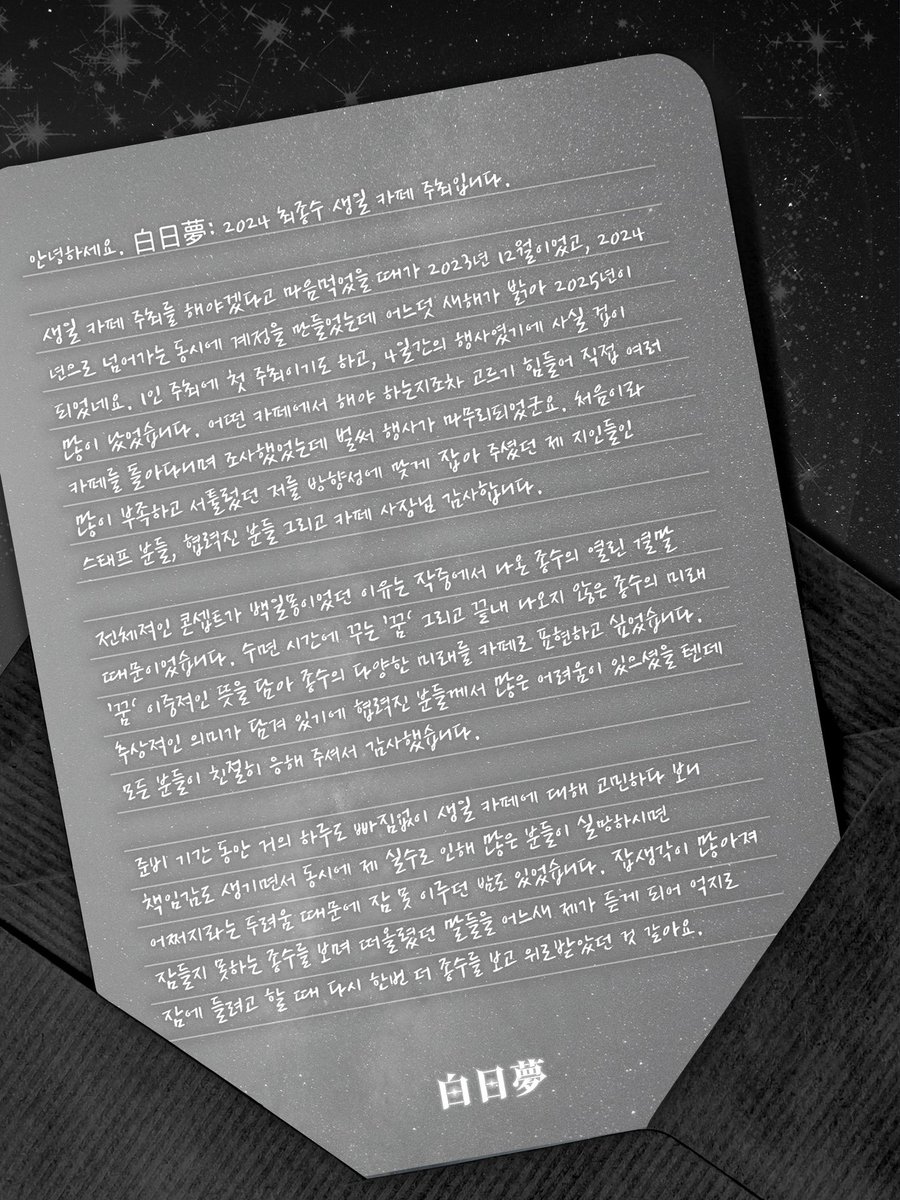 안녕하세요. 白日夢: 2024 최종수 생일 카페 주최입니다.
생일 카페 주최를 해야겠다고 마음먹었을 때가 2023년 12월이었고, 2024
년으로 넘어가는 동시에 계정을 만들었는데 어느덧 새해가 밝아 2025년이
되었네요. 1인 주최에 첫 주최이기도 하고, 4일간의 행사였기에 사실 겁이
많이 났었습니다. 어떤 카페에서 해야 하는지조차 고르기 힘들어 직접 여러
카페를 돌아다니며 조사했었는데 벌써 행사가 마무리되었군요. 처음이라
많이 부족하고 서툴렀던 저를 방향성에 맞게 잡아 주셨던 제 지인들인
스태프 분들, 협력진 분들 그리고 카페 사장님 감사합니다.
전체적인 콘셉트가 백일몽이었던 이유는 작중에서 나온 종수의 열린 결말
때문이었습니다. 수면 시간에 꾸는 '꿈' 그리고 끝내 나오지 않은 종수의 미래
'꿈' 이중적인 뜻을 담아 종수의 다양한 미래를 카페로 표현하고 싶었습니다.
추상적인 의미가 담겨 있기에 협력진 분들께서 많은 어려움이 있으셨을 텐데
모든 분들이 친절히 응해 주셔서 감사했습니다.
준비 기간 동안 거의 하루도 빠짐없이 생일 카페에 대해 고민하다 보니
책임감도 생기면서 동시에 제 실수로 인해 많은 분들이 실망하시면
어쩌지라는 두려움 때문에 잠 못 이루던 밤도 있었습니다. 잡생각이 많아져
잠들지 못하는 종수를 보며 떠올렸던 말들을 어느새 제가 듣게 되어 억지로
잠에 들려고 할 때 다시 한번 더 종수를 보고 위로받았던 것 같아요.
白日夢